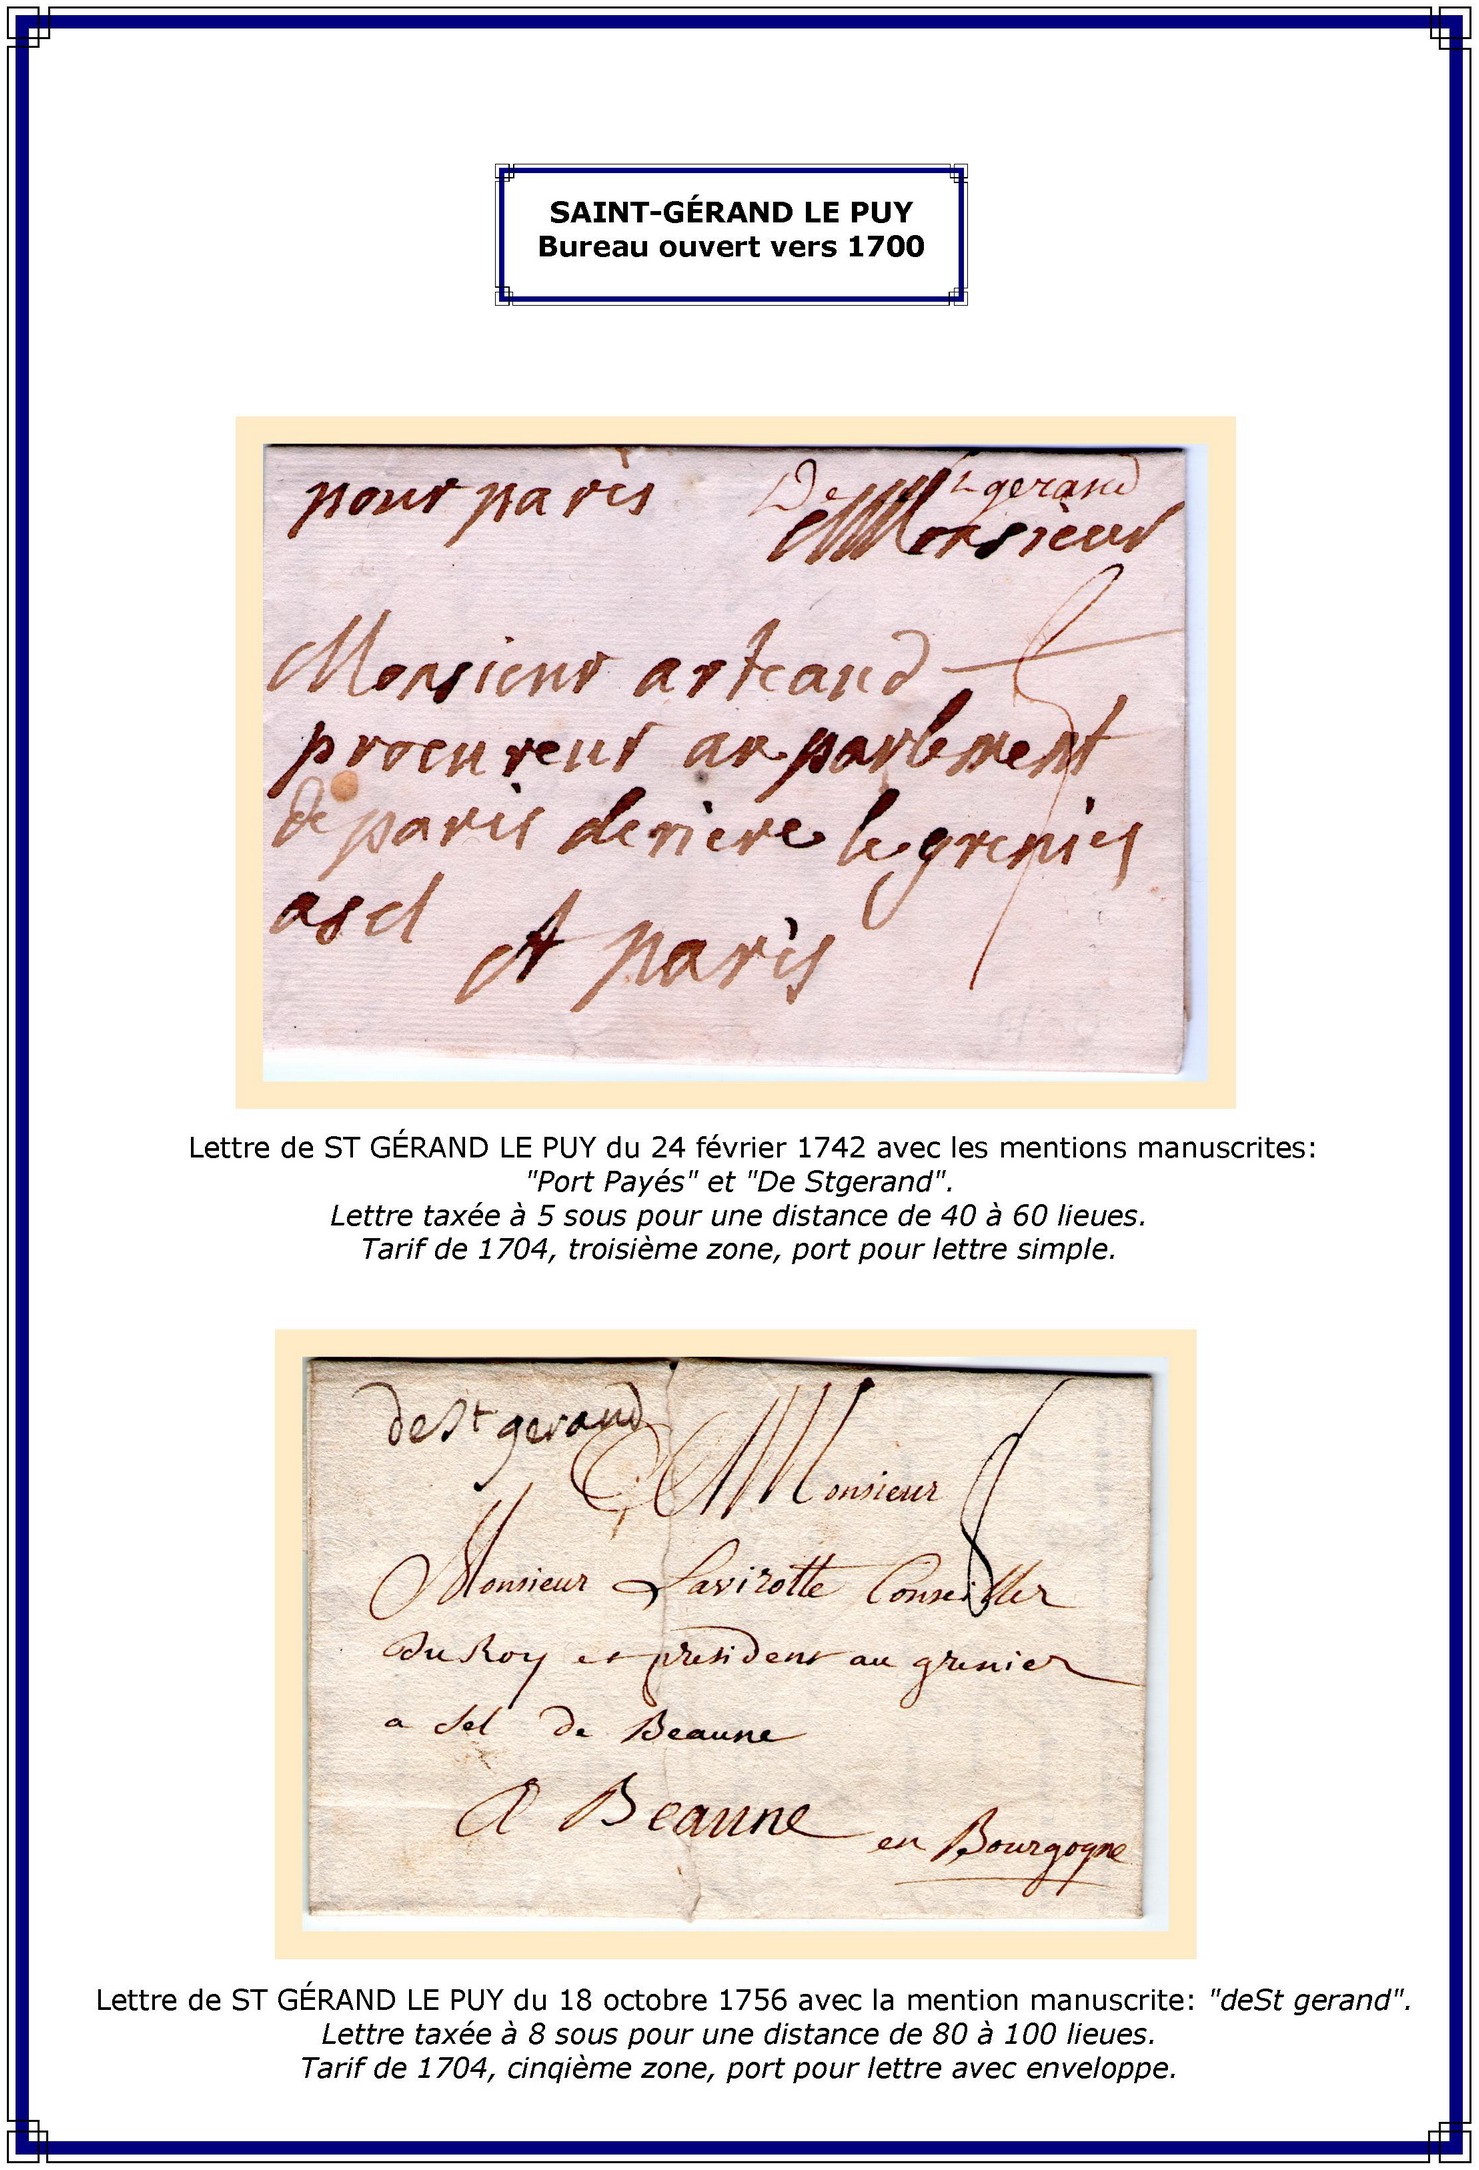 SAINT-GÉRAND LE PUY
Bureau ouvert vers 1700
pour paris De St gerand
Monsieur
Monsieur arteaud
procureur au parlement
de paris deriere le grenier
a sel
A paris
Lettre de ST GÉRAND LE PUY du 24 février 1742 avec les mentions manuscrites:
"Port Payés" et "De Stgerand".
Lettre taxée à 5 sous pour une distance de 40 à 60 lieues.
Tarif de 1704, troisième zone, port pour lettre simple.
de St gerand
A Monsieur 8
Monsieur Lavirotte Conseiller
du Roy et president au grenier
a sel de Beaune
A Beaune en Bourgogne
Lettre de ST GÉRAND LE PUY du 18 octobre 1756 avec la mention manuscrite: "deSt gerand".
Lettre taxée à 8 sous pour une distance de 80 à 100 lieues.
Tarif de 1704, cinqième zone, port pour lettre avec enveloppe.